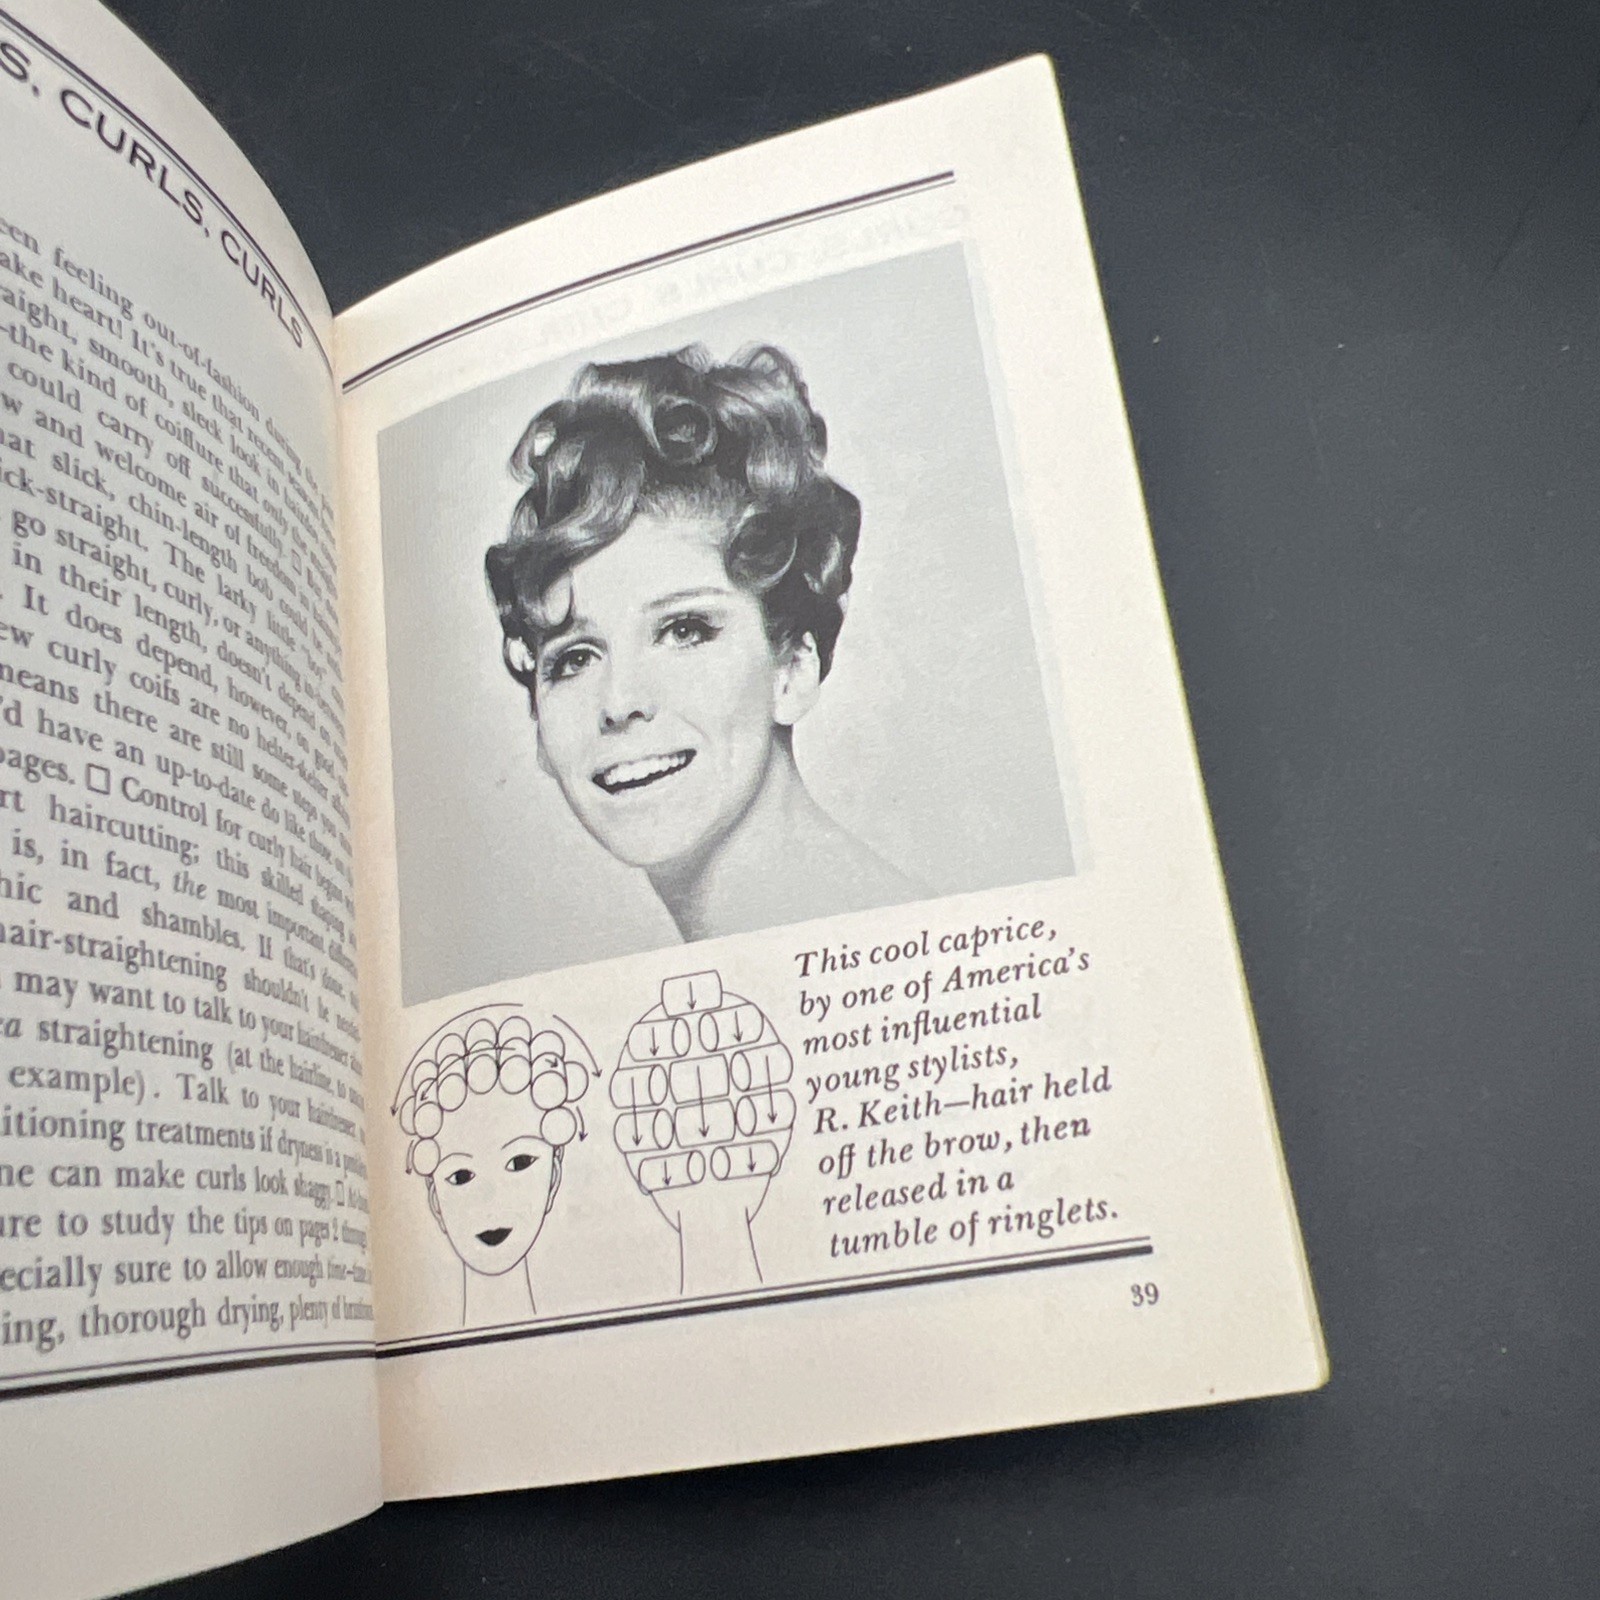 S, CURLS, CURLS
een feeling out-of-fashion during the
ake heart! It's true that recent
aight, smooth, sleek look in
—the kind of coiffure that only the
could carry off successfully. □
w and welcome air of freedom in
hat slick, chin-length bob could be
ick-straight. The larky little "boy"
go straight, curly, or anything in-between
in their length, doesn't depend on
. It does depend, however, on good
ew curly coifs are no helter-skelter
means there are still some steps you
'd have an up-to-date do like those on
pages. □ Control for curly hair begins
rt haircutting; this skilled shaping
is, in fact, the most important
hic and shambles. If that's done,
hair-straightening shouldn't be
may want to talk to your hairdresser
ea straightening (at the hairline,
example). Talk to your hairdresser
itioning treatments if dryness is a problem
ne can make curls look shaggy. □
ure to study the tips on pages 2 through
ecially sure to allow enough time—
ing, thorough drying, plenty of
This cool caprice,
by one of America's
most influential
young stylists,
R. Keith—hair held
off the brow, then
released in a
tumble of ringlets.
39